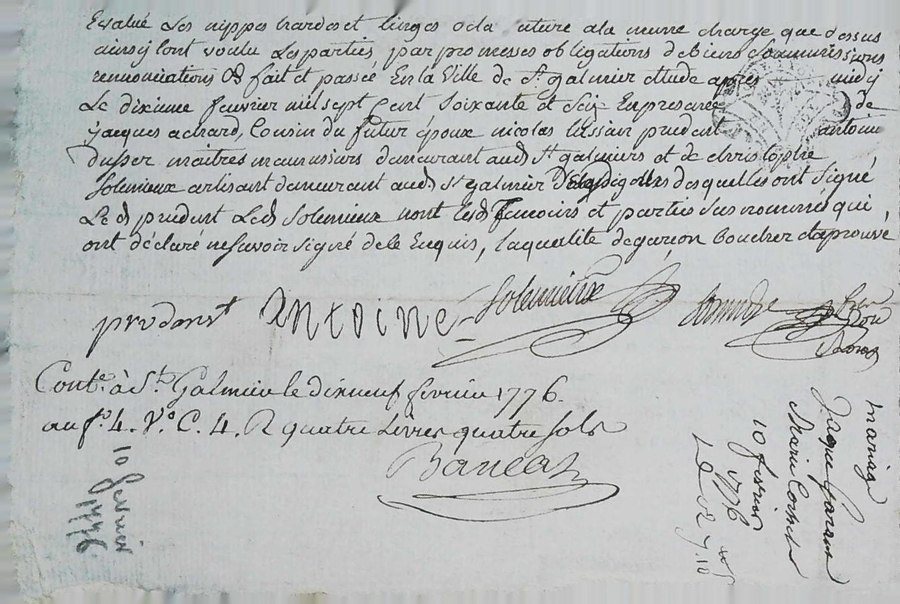 Evalué Les nippes hardes et linges de la future a la meme charge que dessus
ainsy lont voulu Les parties, par promesses obligations de Biens Soumissions
renonciations &c fait et passée En la Ville de St galmier etude apres midy
Le dixieme fevrier mil sept Cent Soixante et Seize En presance de
jacques achard, Cousin du futur époux nicolas prudent antoine
maitres demeurant aud St galmier et de christophe
Solemieux artisant demeurant aud St galmier desquelles ont Signé
Le d prudent Led Solemieux non Lesd temoins et parties Sus nommé qui
ont déclaré ne Savoir Signé de ce Enquis, La qualité de garçon Boucher et aprouvé
prudenst Antoine Solemieux
Contlé à St Galmier le dix neuf février 1776.
au fo. 4. Vo. C. 4. R quatre Livres quatre Sols
10 fevrier
1776
mariage
Jaque
Marie
10 fevrier
1776